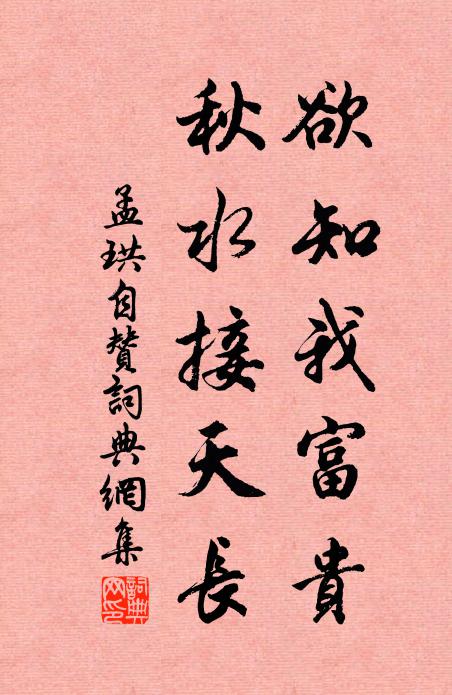 欲知我富貴
秋水接天長
孟珙自贊詞典網集
詞典网印